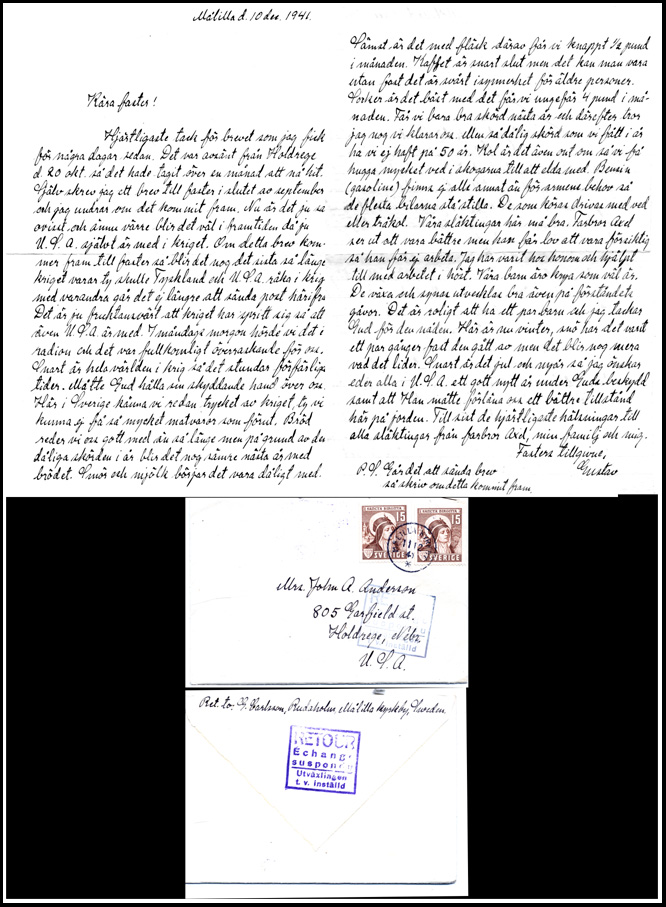 Målilla d. 10 dec. 1941.
Kära faster!
Hjärtligaste tack för brevet som jag fick
för några dagar sedan. Det var avsänt från Holdrege
d. 20 okt. så det hade tagit över en månad att nå hit.
Själv skrev jag ett brev till faster i slutet av september
och jag undrar om det kommit fram. Nu är det ju så
ovisst och ännu värre blir det väl i framtiden då ju
U.S.A. självt är med i kriget. Om detta brev kom-
mer fram till faster så blir det nog det sista så länge
kriget varar ty skulle Tyskland och U.S.A. råka i krig
med varandra går det ej längre att sända post härifrån.
Det är ju fruktansvärt att kriget har spritt sig så att
även U.S.A. är med. I måndags morgon hörde vi det i
radion och det var fullkomligt överraskande för oss.
Snart är hela världen i krig så det stundar förfärliga
tider. Måtte Gud hålla sin skyddande hand över oss.
Här i Sverige känna vi redan trycket av kriget, ty vi
kunna ej få så mycket matvaror som förut. Bröd
reder vi oss gott med än så länge men på grund av den
dåliga skörden i år blir det nog sämre nästa år med
brödet. Smör och mjölk börjar det vara dåligt med.
Sämst är det med fläsk därav får vi knappt ½ pund
i månaden. Kaffet är snart slut men det kan man vara
utan fast det är svårt isynnerhet för äldre personer.
Socker är det bäst med det får vi ungefär 4 pund i må-
naden. Får vi bara bra skörd nästa år och därefter tror
jag nog vi klarar oss. Men så dålig skörd som vi fått i år
ha vi ej haft på 50 år. Kol är det även ont om så vi få
hugga mycket ved i skogarna till att elda med. Bensin
(gasoline) finns ej alls annat än för armens behov så
de flesta bilarna stå stilla. De som köras drivas med ved
eller träkol. Våra släktingar här må bra. Farbror Axel
ser ut att vara bättre men han får lov att vara försiktig
så han får ej arbeta. Jag har varit hos honom och hjälpt
till med arbetet i höst. Våra barn äro krya som väl är.
De växa och synas utvecklas bra även på förståndets
gåvor. Det är roligt att ha ett par barn och jag tackar
Gud för den nåden. Här är nu vinter, snö har det varit
ett par gånger fast den gått av men det blir nog mera
vad det lider. Snart är det jul och nyår så jag önskar
eder alla i U.S.A. ett gott nytt år under Guds beskydd
samt att Han måtte förläna oss ett bättre tillstånd
här på jorden. Till sist de hjärtligaste hälsningar till
alla släktingar från farbror Axel, min familj och mig.
Fasters tillgivne,
Gustav
P.S. Går det att sända brev
så skriv om detta kommit fram.
SANCTA BIRGITTA
15
SVERIGE
SANCTA BIRGITTA
15
SVERIGE
Mrs. John A. Anderson
805 Garfield st.
Holdrege, Nebr.
U.S.A.
Ret. to. G. Carlsson, Rudaholm, Målilla Kyrkby, Sweden.
RETOUR
Echange
suspendu
Utväxlingen
t. v. inställd